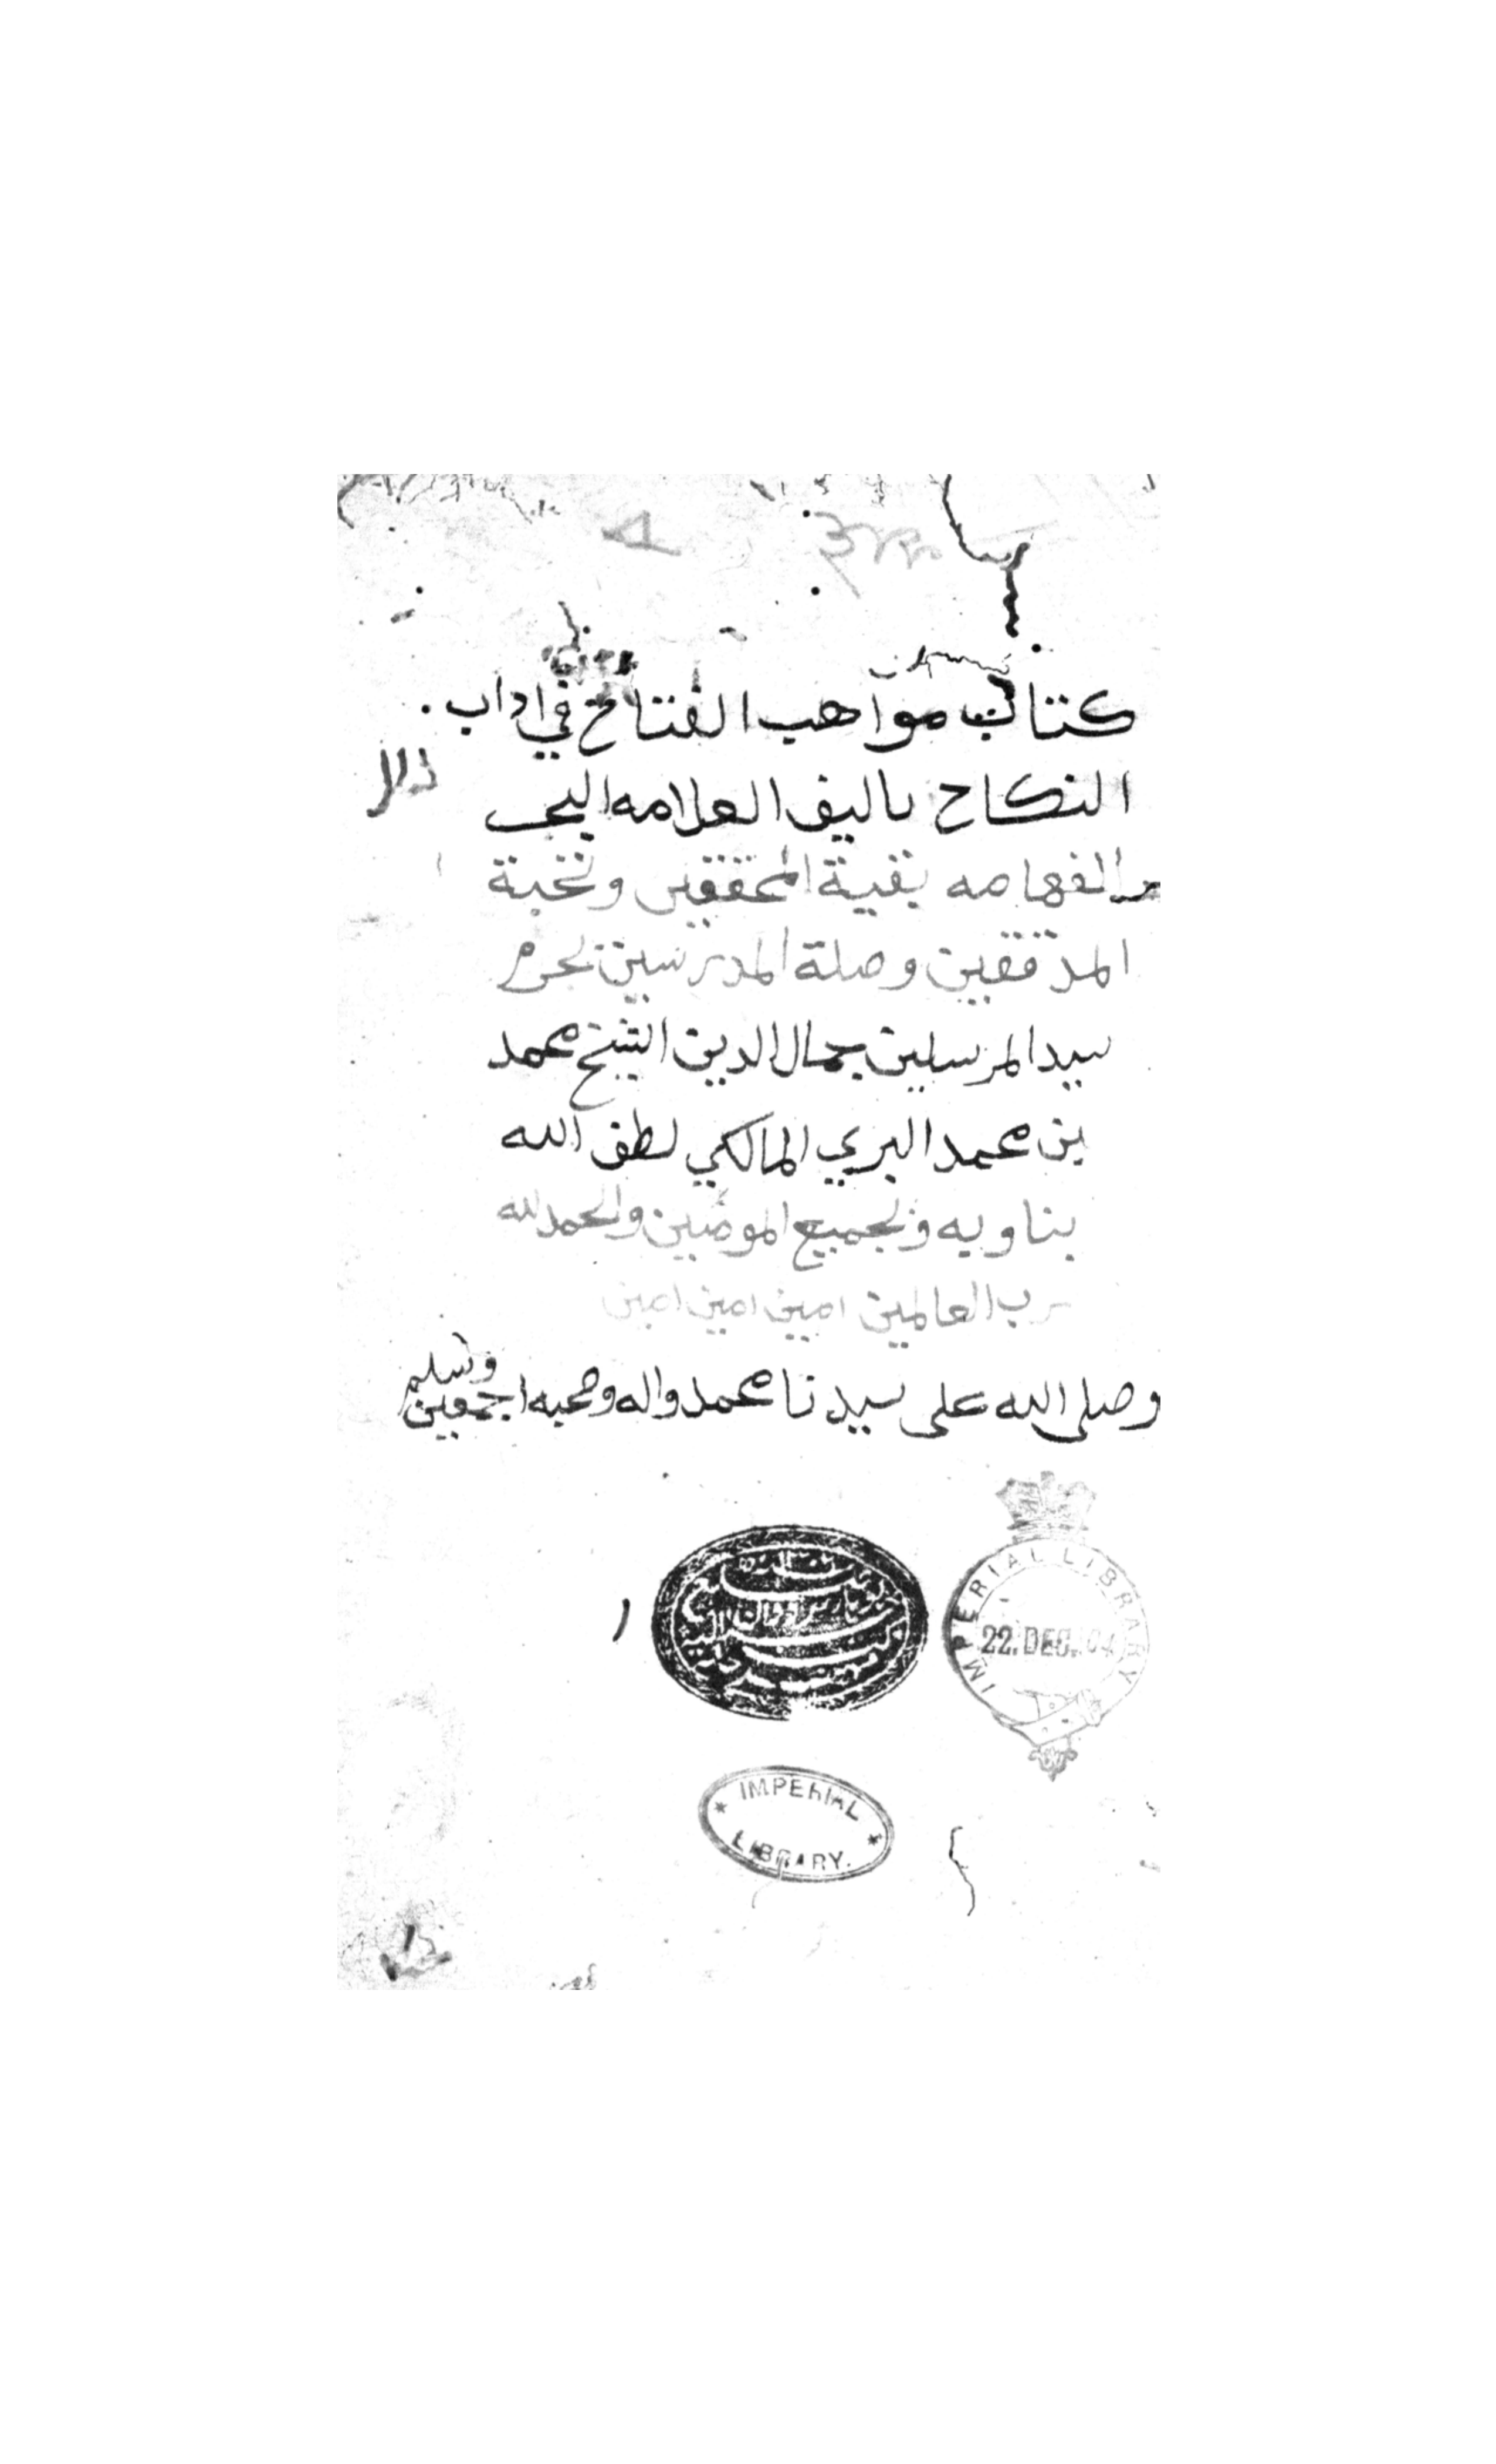 كتاب مواهب الفتاح في اداب
النكاح تاليف العلامه البحـ
ـر الفهامه بقية المحققين ونخبة
المدققين وصلة المدرسين بحرم
سيد المرسلين جمال الدين الشيخ محمد
بن محمد البري المالكي لطف الله
بنا وبه وبجميع المومنين والحمد لله
رب العالمين امين امين امين
وصلى الله على سيدنا محمد واله وصحبه اجمعين وسلم
IMPERIAL LIBRARY
22. DEC. 04
IMPERIAL
LIBRARY.